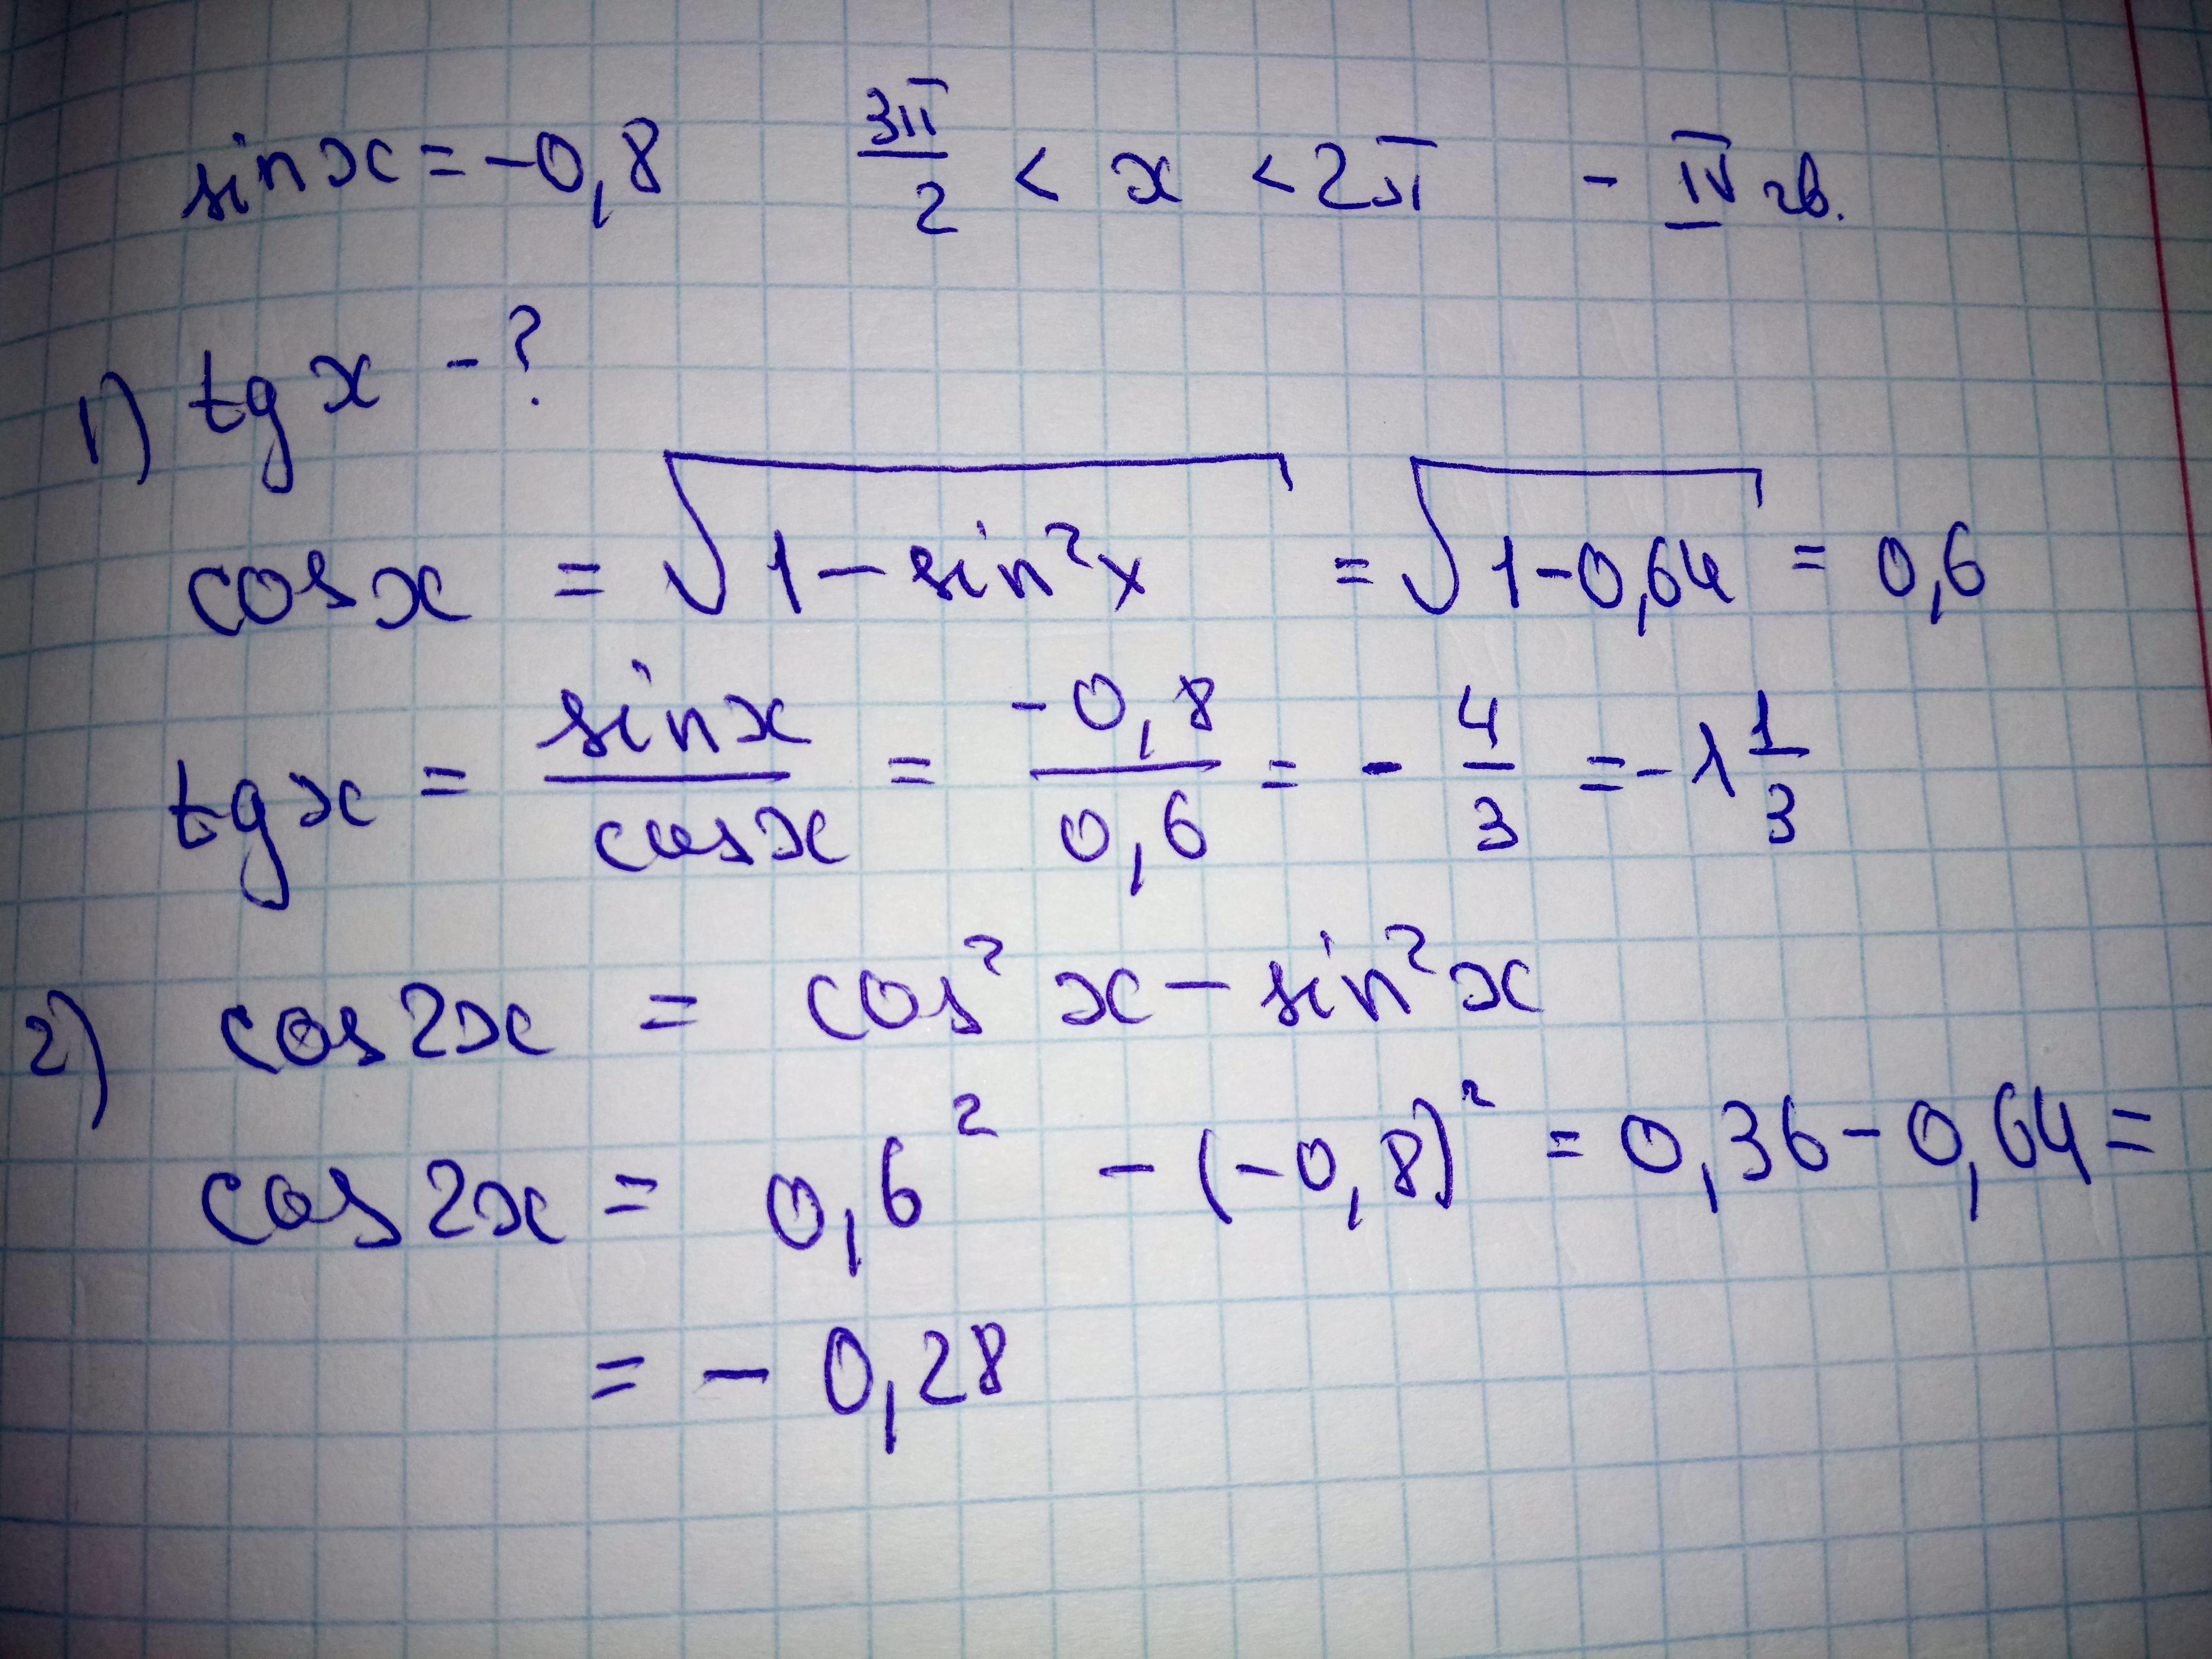 sinx = -0,8 3π/2 < x < 2π - IV чв.
1) tg x - ?
cosx = √(1 - sin²x) = √(1-0,64) = 0,6
tgx = sinx/cosx = -0,8/0,6 = - 4/3 = -1 1/3
2) cos2x = cos² x - sin²x
cos2x = 0,6² - (-0,8)² = 0,36 - 0,64 =
= - 0,28